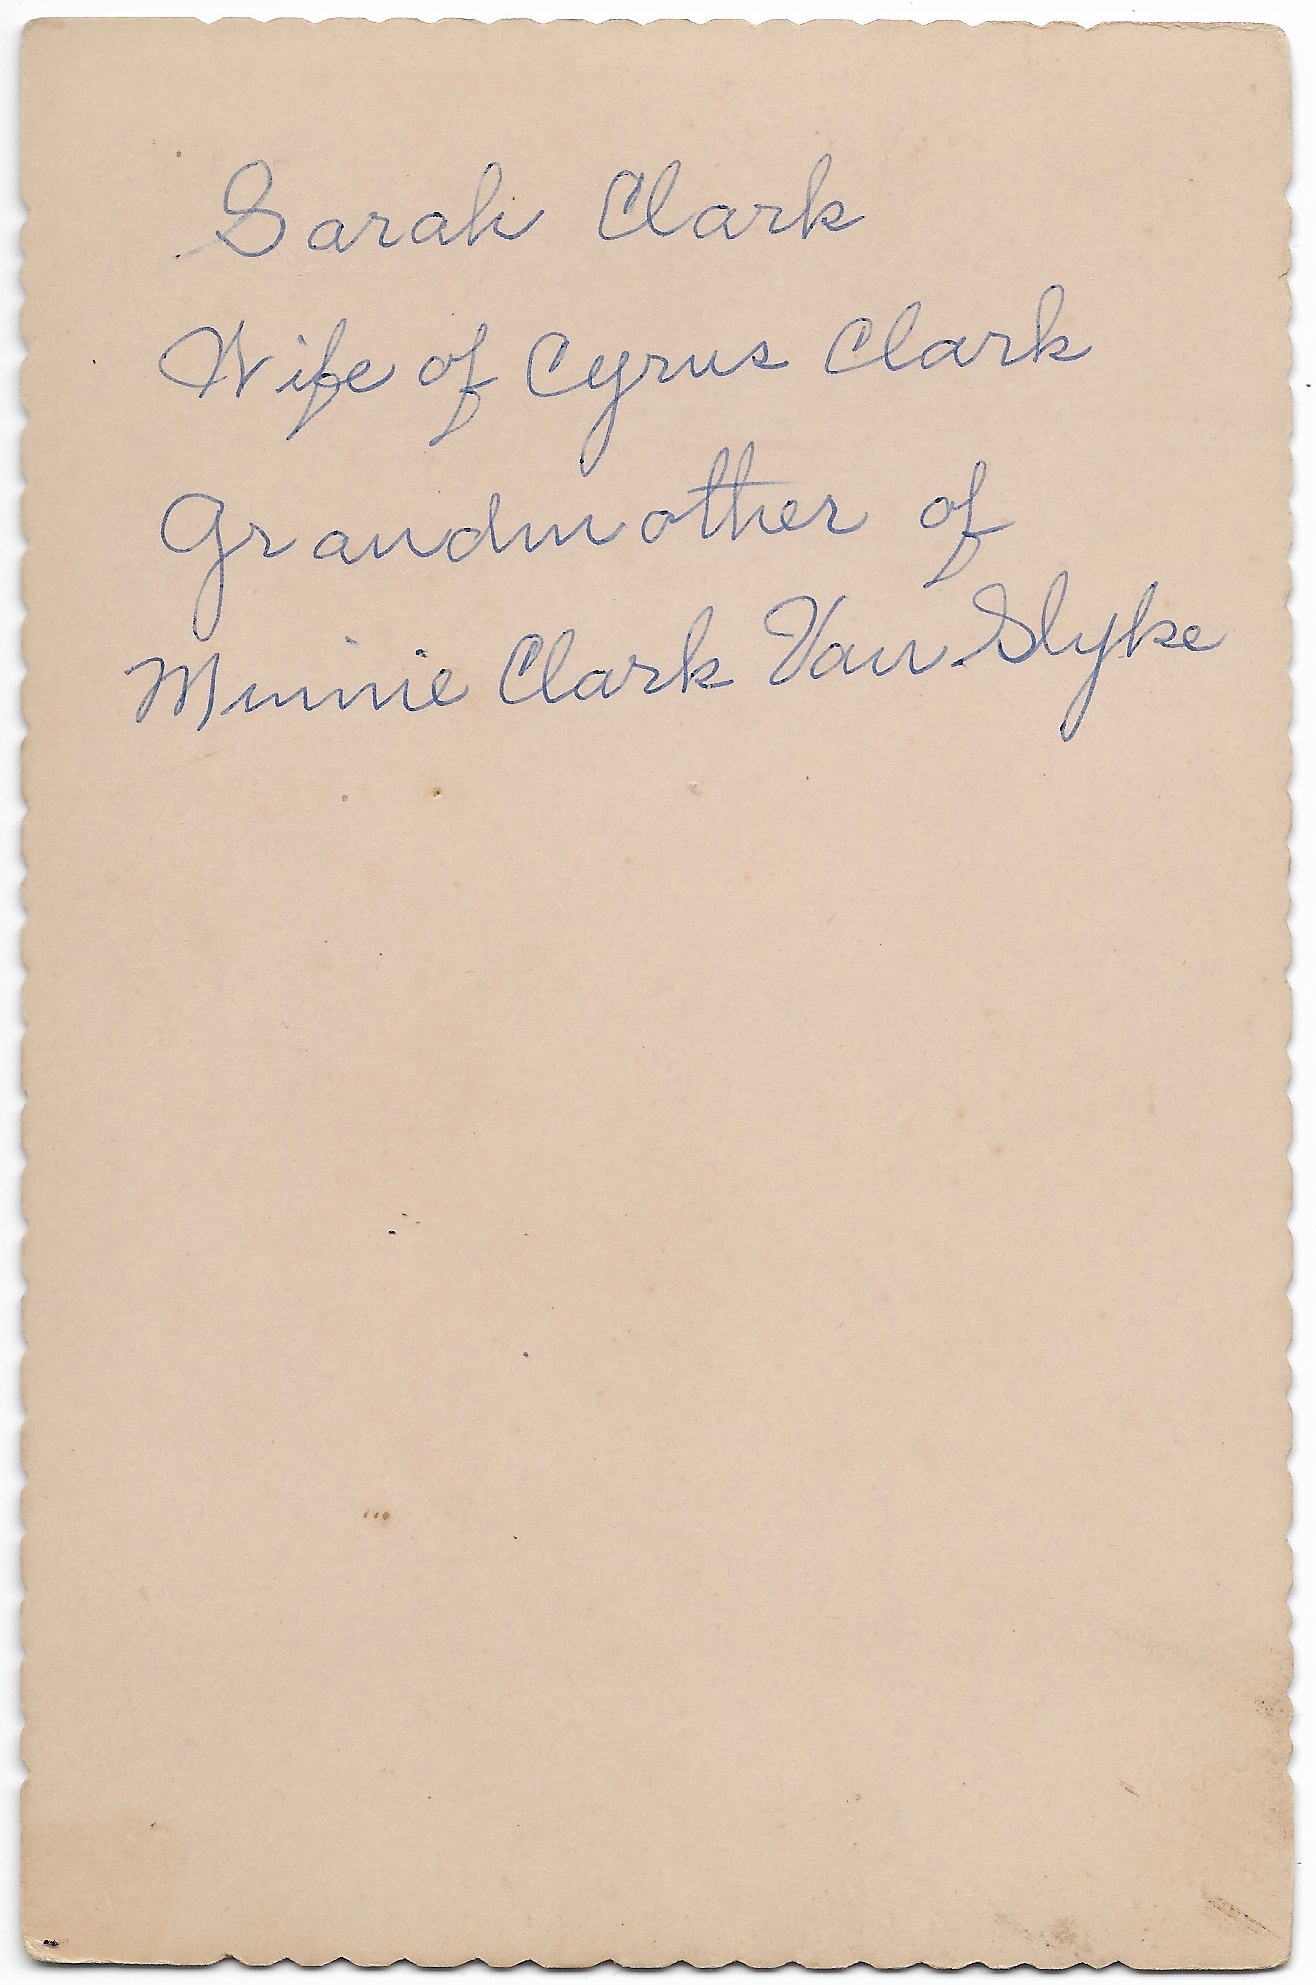 Sarah Clark
Wife of Cyrus Clark
Grandmother of
Minnie Clark Van Slyke